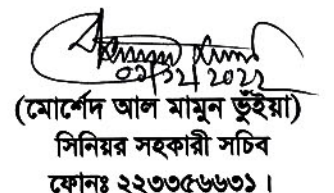 ০১/১২/২০২২
(মোর্শেদ আল মামুন ভূঁইয়া)
সিনিয়র সহকারী সচিব
ফোনঃ ২২৩৩৫৬৬৩১।